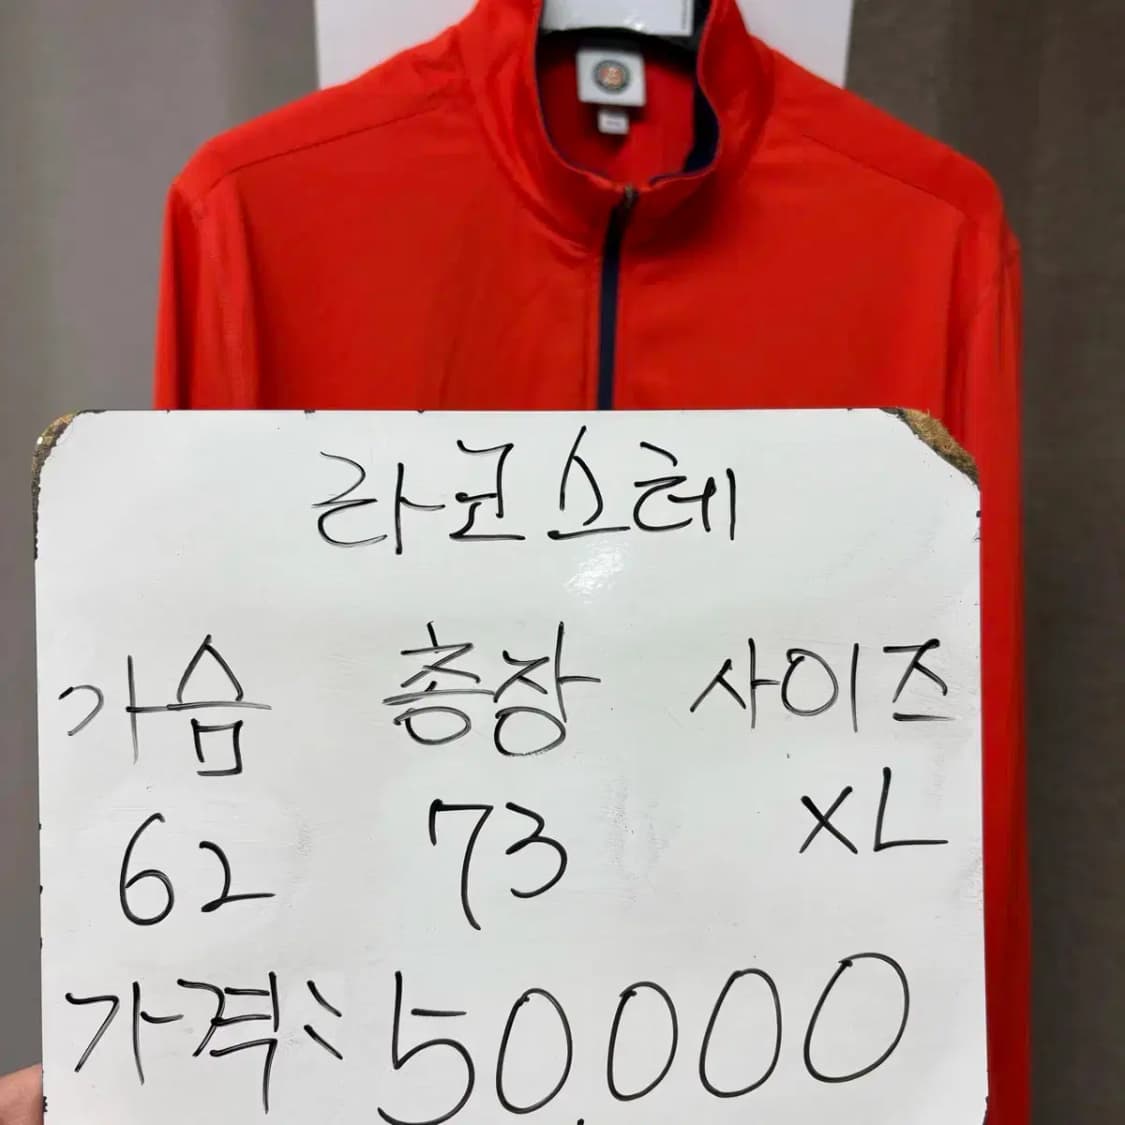 라코스테
가슴 총장 사이즈
62 73 XL
가격: 50,000